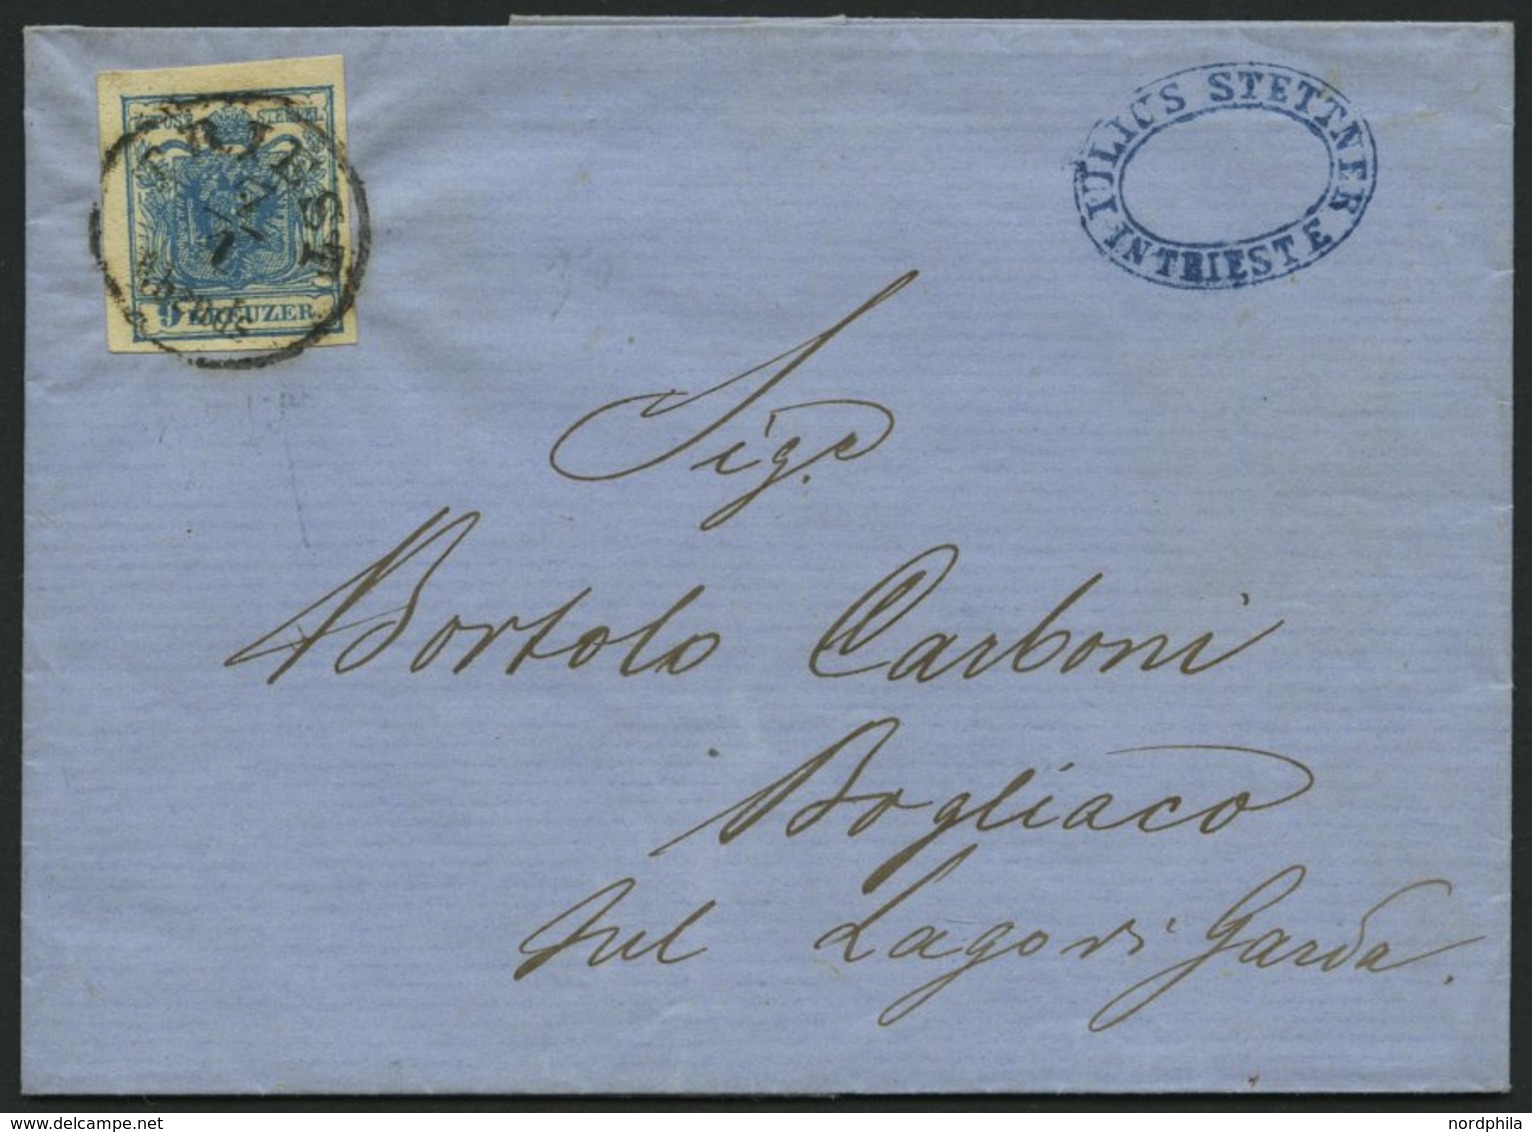 K.K.POST-STEMPEL
9 KREUZER.
TRIEST
Abends
IULIUS STETTNER
IN TRIESTE
Sigr
Bortolo Carboni
Bogliaco
sul Lago di Garda.
nordphila